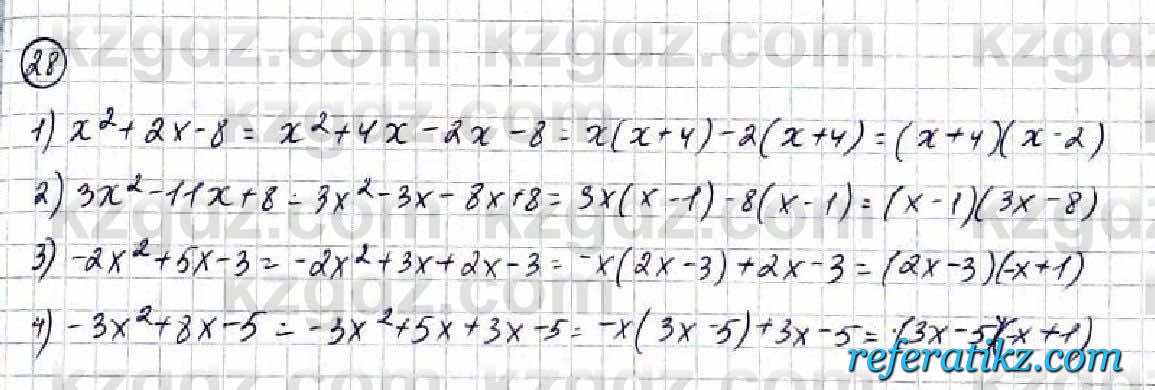 28
1) x²+2x-8= x²+4x-2x-8= x(x+4)-2(x+4)=(x+4)(x-2)
2) 3x²-11x+8=3x²-3x-8x+8=3x(x-1)-8(x-1)=(x-1)(3x-8)
3) -2x²+5x-3=-2x²+3x+2x-3=-x(2x-3)+2x-3=(2x-3)(-x+1)
4) -3x²+8x-5=-3x²+5x+3x-5=-x(3x-5)+3x-5=(3x-5)(-x+1)
kzgdz.com
referatikz.com